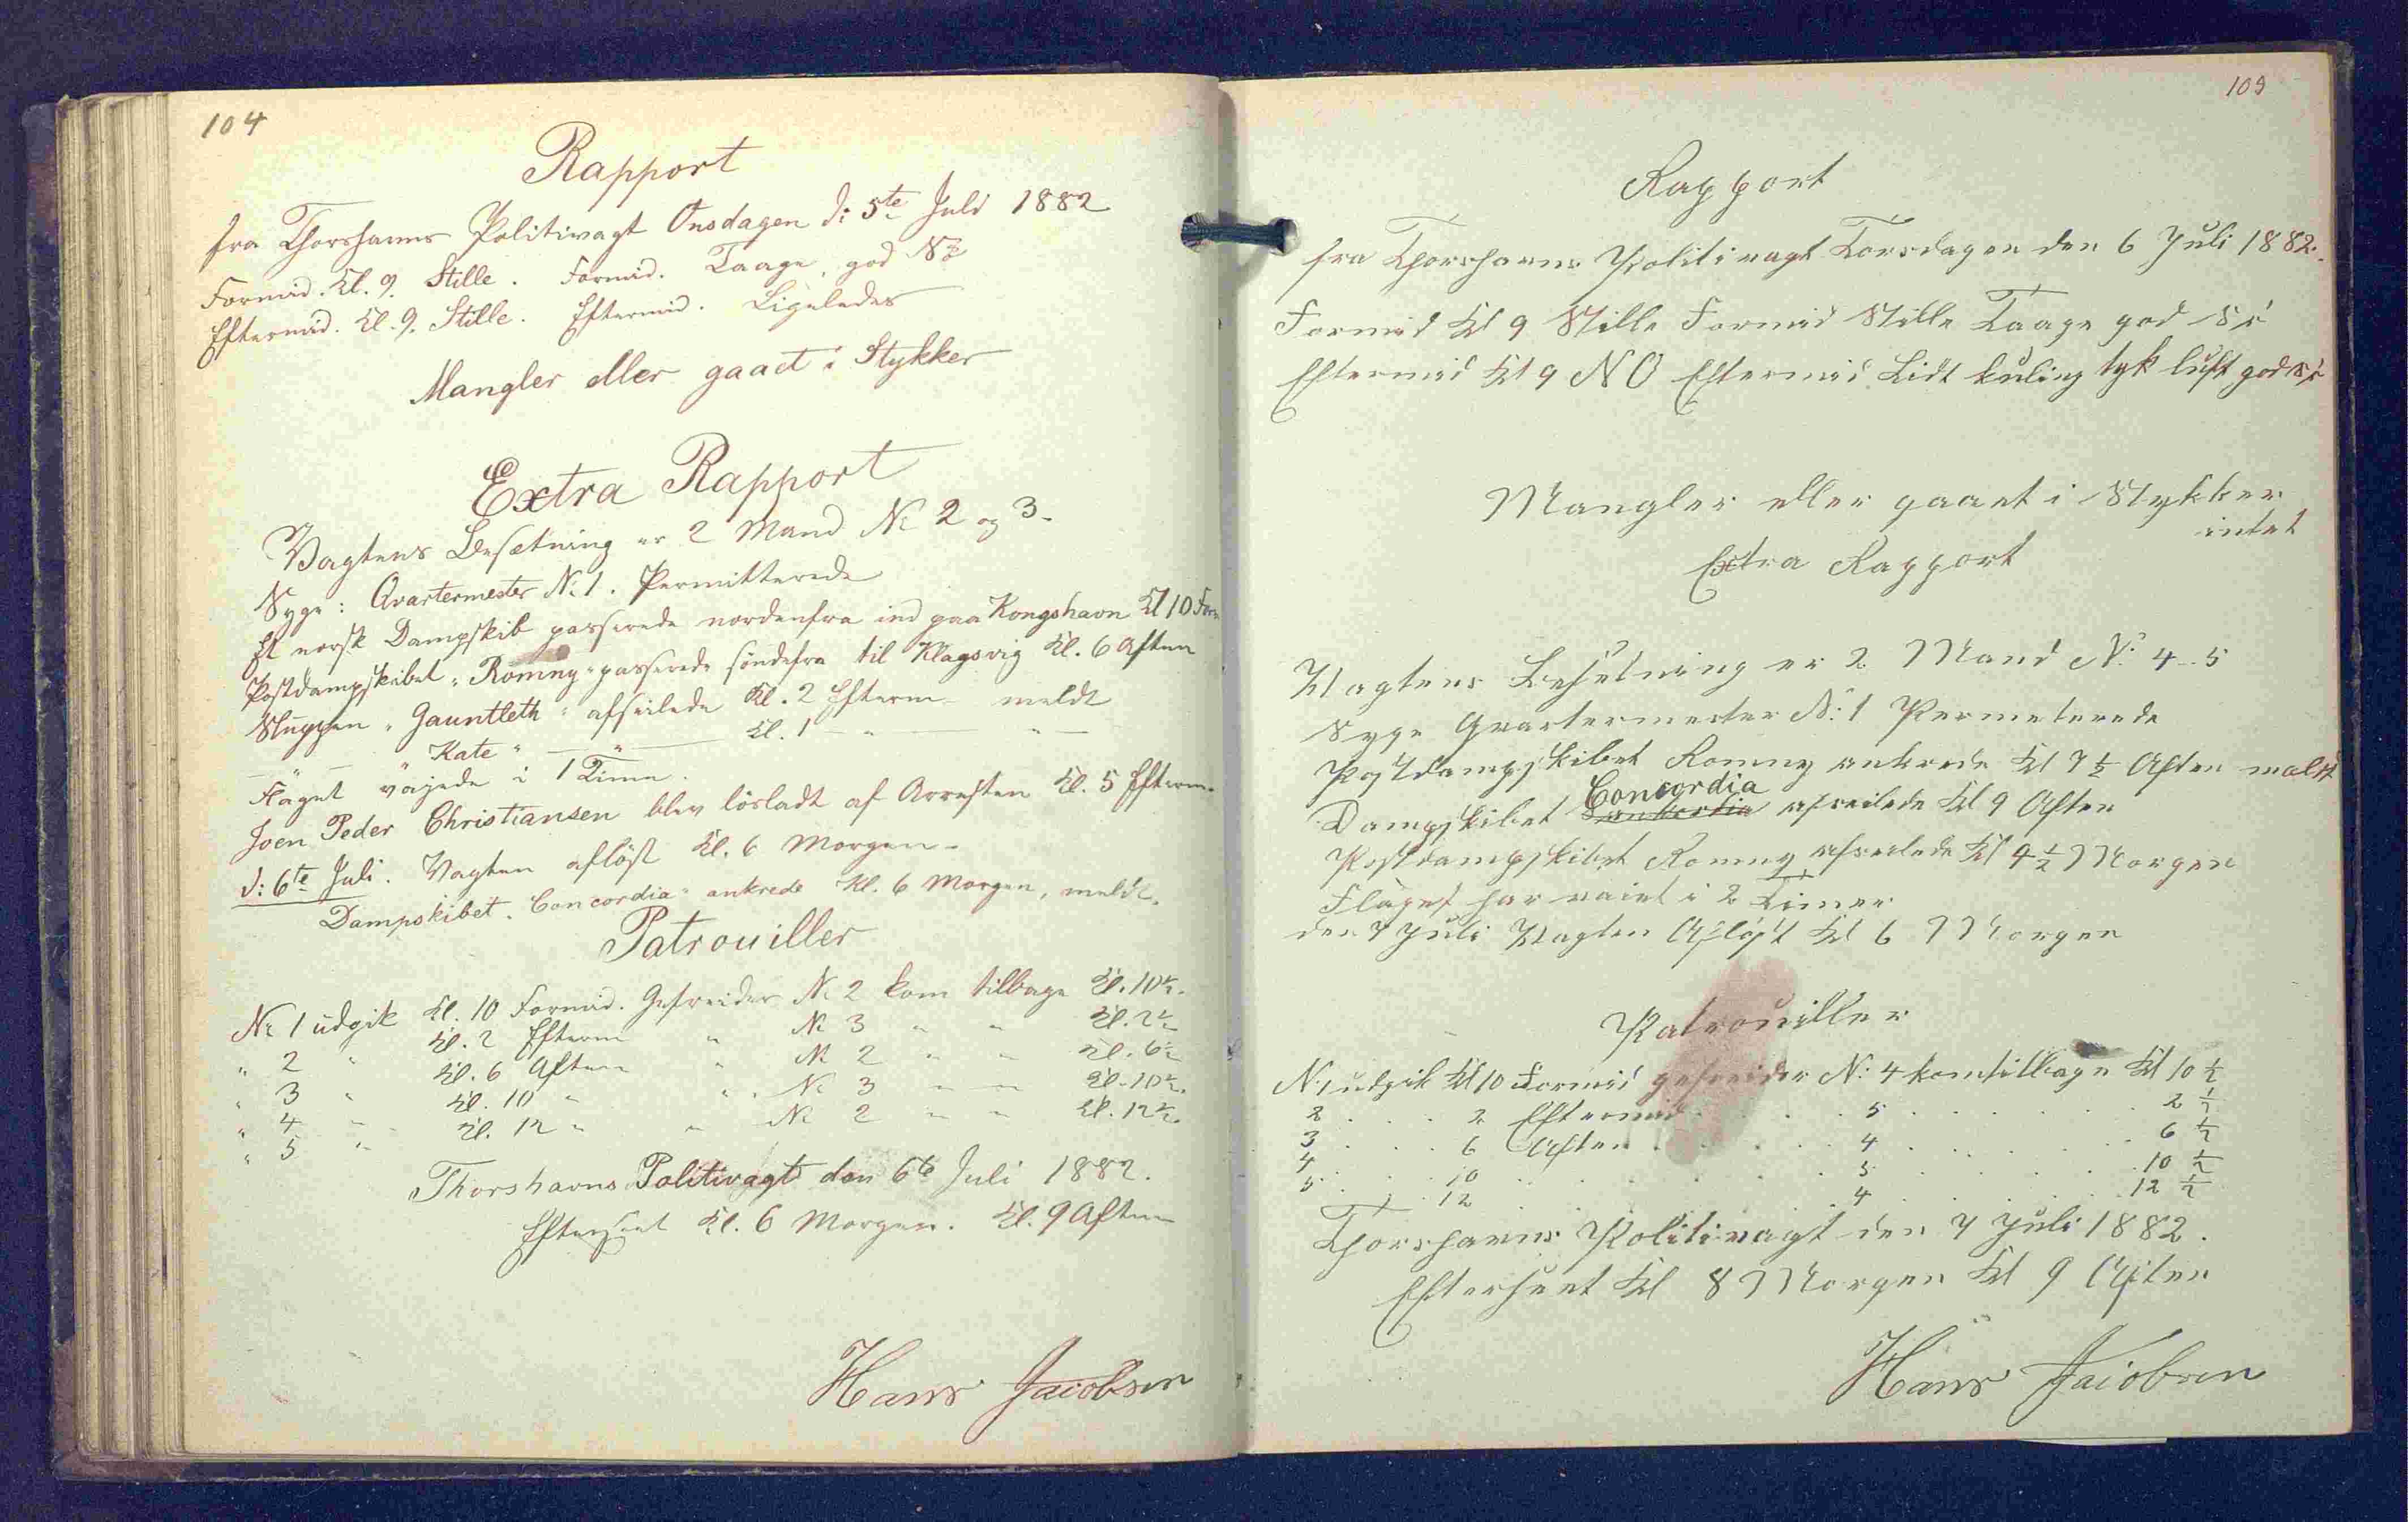 104
Rapport
fra Thorshavns Politivagt Onsdagen d: 5te Juli 1882
Formid. Kl. 9. Stille. Formid. Taage, god Sö
Eftermid. Kl. 9. Stille. Eftermid. Ligeledes
Mangler eller gaaet i Stykker
Extra Rapport
Vagtens Besætning er 2 Mand No 2 og 3-
Syge: Qvartermester No 1. Permitterede
Et norsk Dampskib passerede nordenfra ind paa Kongshavn Kl 10 Form
Postdampskibet "Romny" passerede söndefra til Klagsvig Kl. 6 Aften
Sluppen "Gauntleth" afseilede Kl. 2 Efterm meldt
— "Kate" — " — Kl. 1 — " — " —
Flaget vajede i 1 Time.
Joen Peder Christiansen blev lösladt af Arresten Kl. 5 Efterm.
d: 6te Juli. Vagten aflöst Kl. 6 Morgen-
Dampskibet "Concordia" ankrede Kl. 6 Morgen, meldt.
Patrouiller
No 1 udgik Kl. 10 Formid. Gefreider No 2 kom tilbage Kl. 10½.
" 2 " Kl. 2 Efterm " No 3 " " Kl. 2½
" 3 " Kl. 6 Aften " No 2 " " Kl. 6½
" 4 " Kl. 10 " " No 3 " " Kl. 10½.
" 5 " Kl. 12 " " No 2 " " Kl. 12½.
Thorshavns Politivagt den 6te Juli 1882.
Efterseet Kl. 6 Morgen. Kl. 9 Aften
Hans Jacobsen
105
Rapport
fra Thorshavns Politivagt Torsdagen den 6 Juli 1882.
Formid Kl 9 Stille Formid Stille Taage god Sö
Eftermid Kl 9 NO Eftermid Lidt kuling tyk luft god Sö
Mangler eller gaaet i Stykker
intet
Extra Rapport
Vagtens Besetning er 2 Mand No: 4-5
Syge Qvartermester No: 1 Permeterede
Postdampskibet Romny ankrede Kl 7½ Aften meldt
Concordia
Dampskibet afseilede Kl 9 Aften
Postdampskibet Romny afseilede Kl 4½ Morgen
Flaget har vaiet i 2 Timer
den 7 Juli Vagten Afløst Kl 6 Morgen
Patrouiller
No: 1 udgik Kl 10 Formid gefreider No: 4 kom tilbage Kl 10 ½
2 . . . 2 Eftermid . . . . 5 . . . . . . 2 ½
3 . . . 6 Aften . . . . . 4 . . . . . . 6 ½
4 . . . 10 . . . . . . . 5 . . . . . . 10 ½
5 . . . 12 . . . . . . . 4 . . . . . . 12 ½
Thorshavns Politivagt den 7 Juli 1882.
Efterseet Kl 8 Morgen Kl 9 Aften
Hans Jacobsen